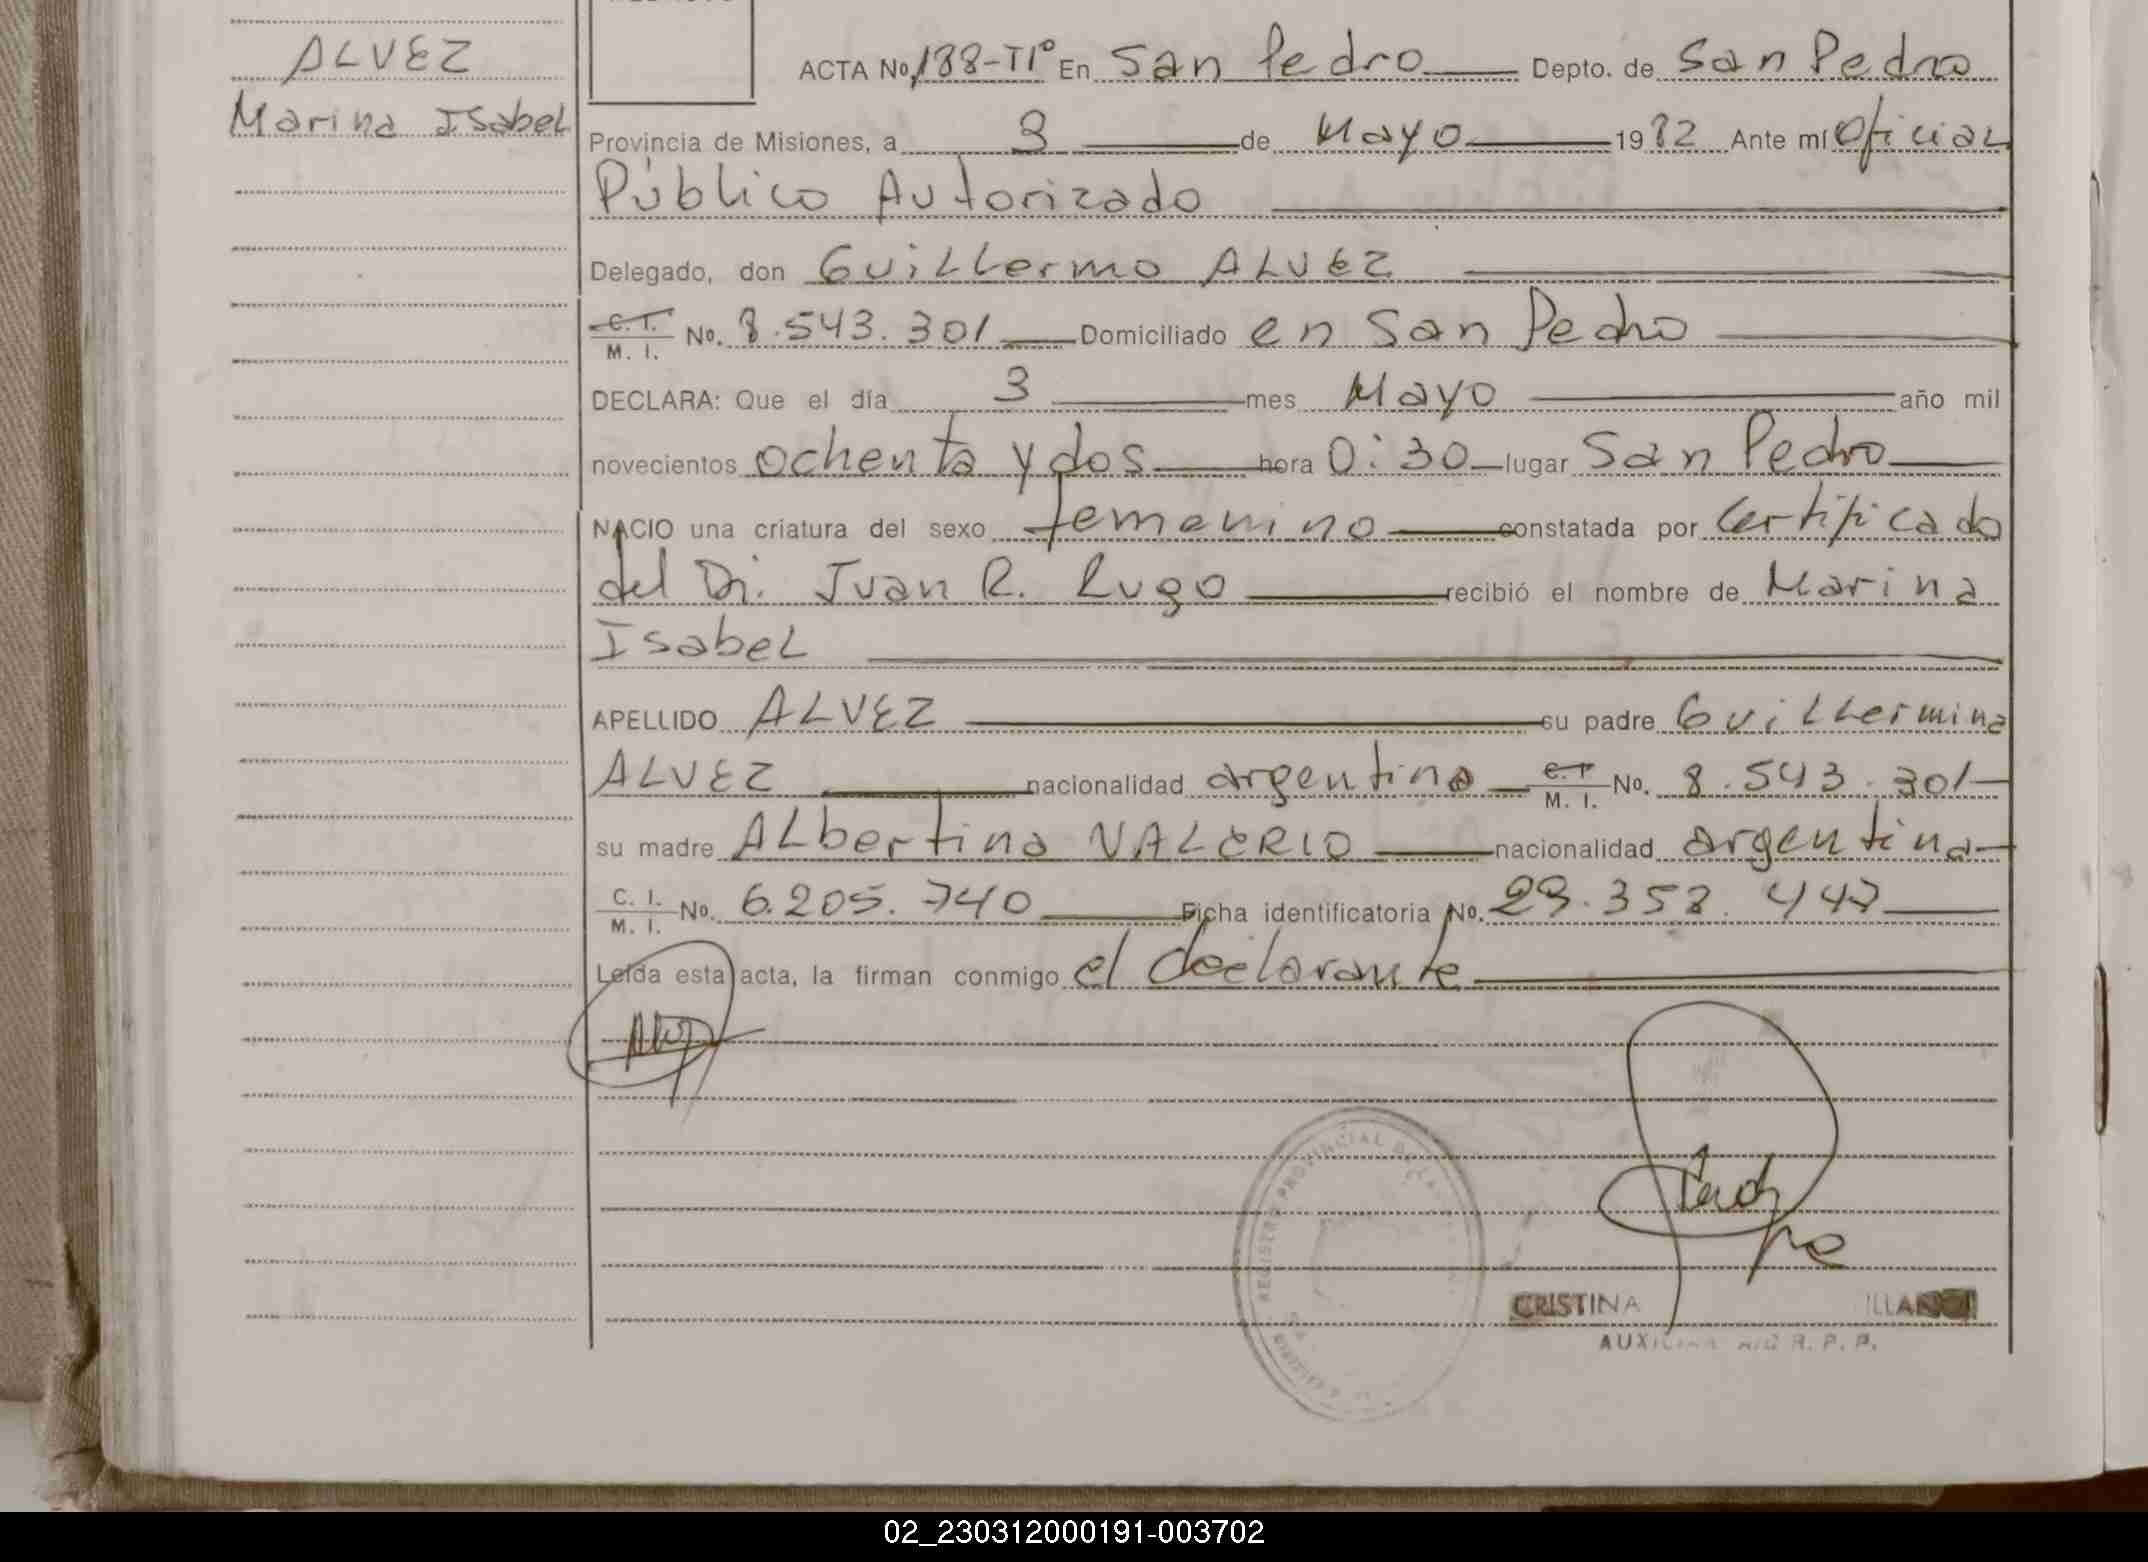 ALVEZ
Marina Isabel
ACTA No. 188-T1º En San Pedro Depto. de San Pedro
Provincia de Misiones, a 3 de Mayo 1982 Ante mí Oficial
Público Autorizado
Delegado, don Guillermo ALVEZ
C. I. M. I. No. 8.543.301 Domiciliado en San Pedro
DECLARA: Que el día 3 mes Mayo año mil
novecientos ochenta y dos hora 0:30 lugar San Pedro
NACIO una criatura del sexo femenino constatada por Certificado
del Dr. Juan R. Lugo recibió el nombre de Marina
Isabel
APELLIDO ALVEZ su padre Guillermino
ALVEZ nacionalidad argentino M. I. No. 8.543.301
su madre ALbertina VALERIO nacionalidad argentina
C. I. M. I. No. 6.205.740 Ficha identificatoria No. 29.358.447
Leída esta acta, la firman conmigo el declarante
REGISTRO PROVINCIAL DE LAS
CRISTINA
R. P. P.
02_230312000191-003702